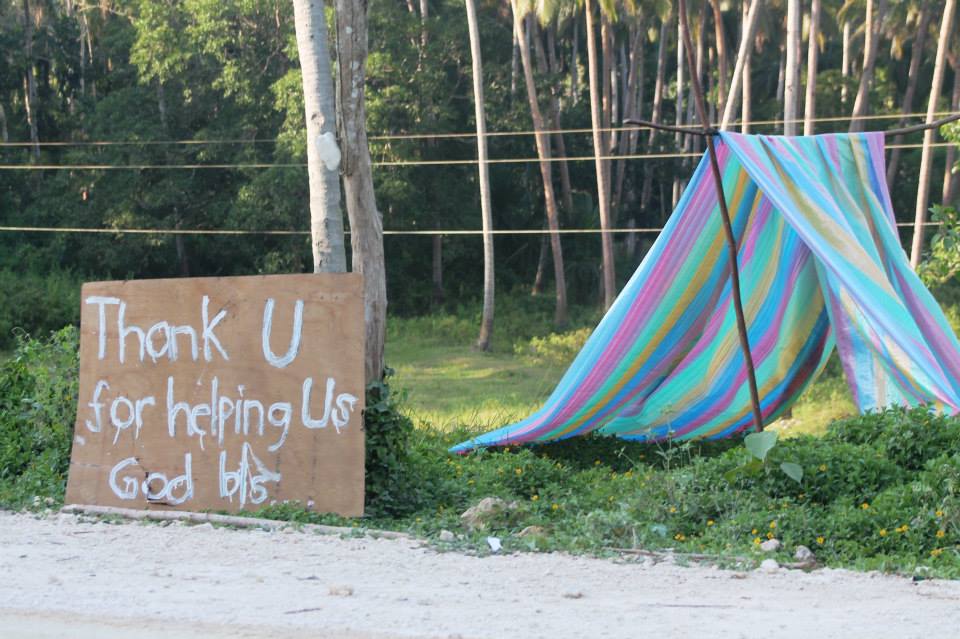 Thank U
for helping Us
God bls